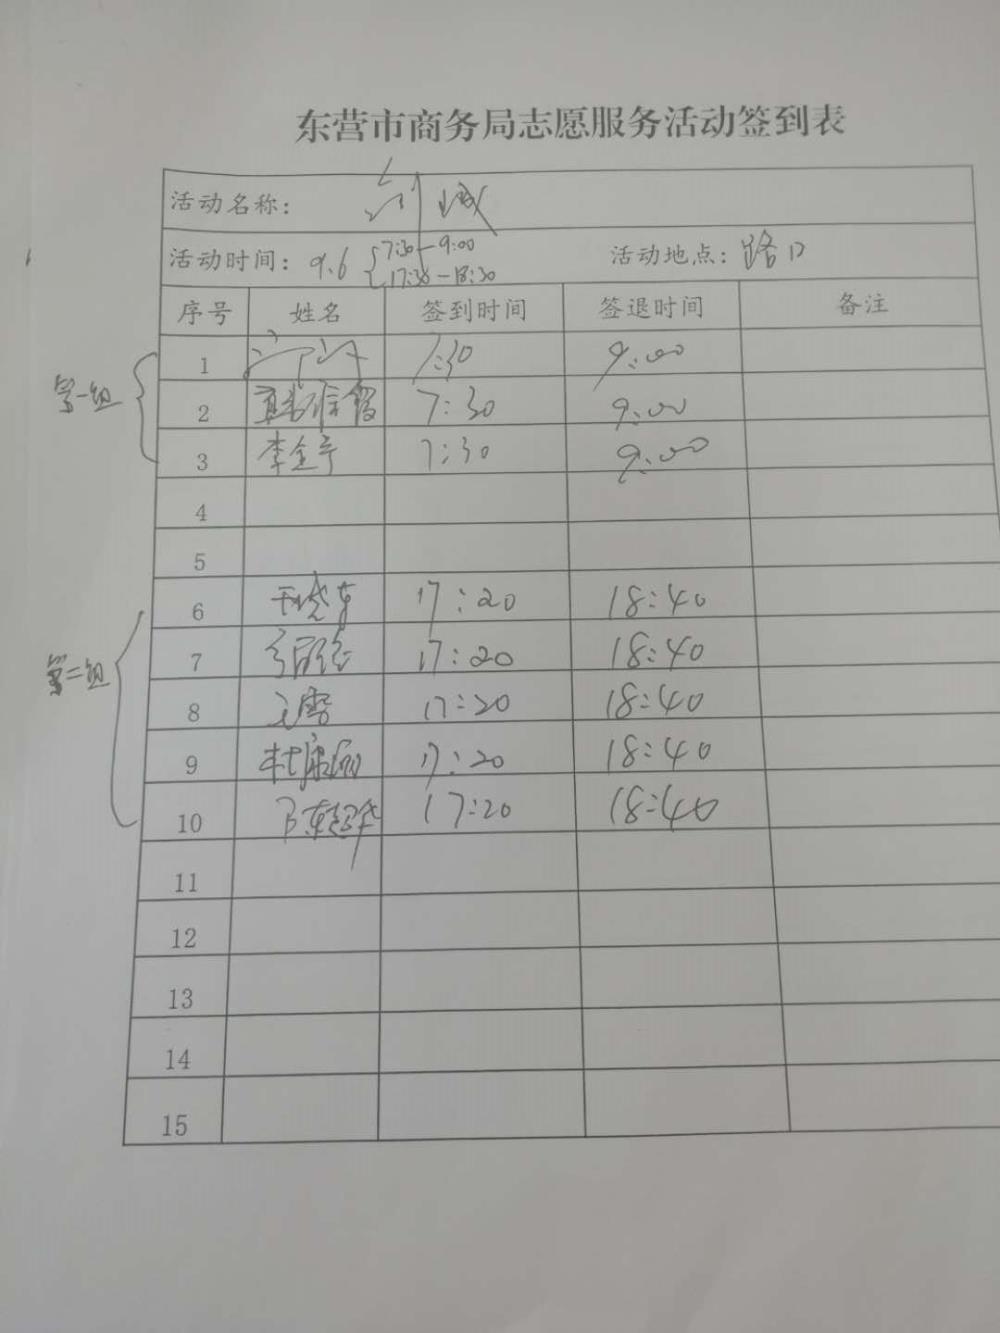 东营市商务局志愿服务活动签到表
活动名称: 创城
活动时间: 9.6 7:30—9:00 17:30—18:30 活动地点: 路口
序号 姓名 签到时间 签退时间 备注
第一组
1 7:30 9:00
2 7:30 9:00
3 李金宁 7:30 9:00
4
5
第二组
6 17:20 18:40
7 17:20 18:40
8 17:20 18:40
9 17:20 18:40
10 17:20 18:40
11
12
13
14
15